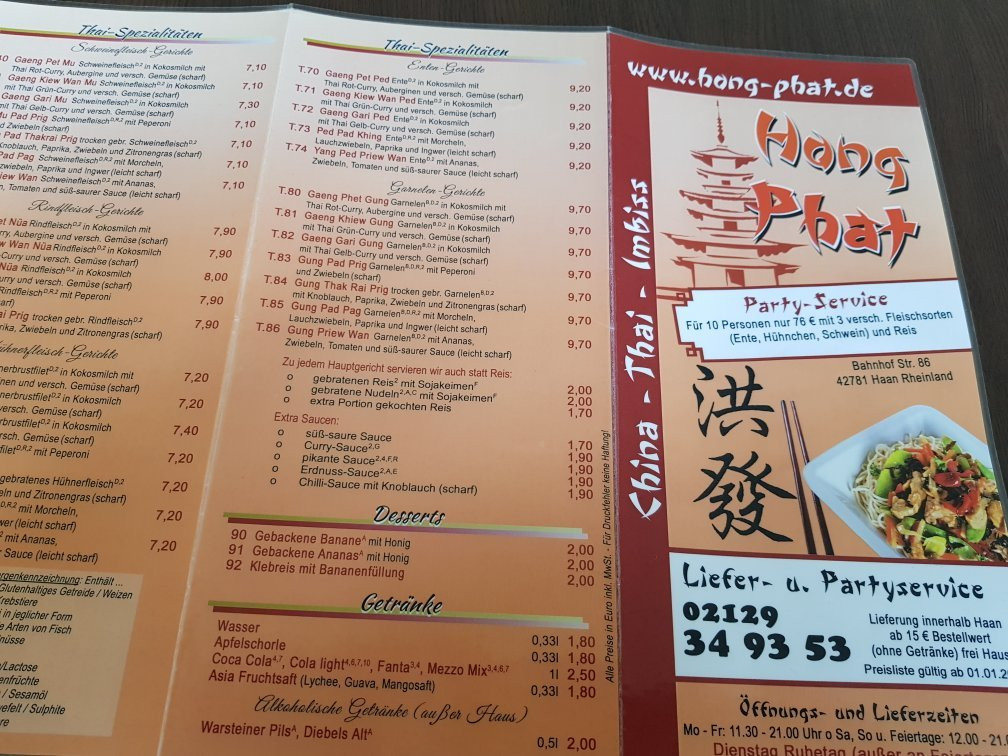 Thai-Spezialitäten
Schweinefleisch-Gerichte
Gaeng Pet Mu Schweinefleisch D,2 in Kokosmilch mit 7,10
Thai Rot-Curry, Aubergine und versch. Gemüse (scharf)
Gaeng Kiew Wan Mu Schweinefleisch D,2 in Kokosmilch 7,10
mit Thai Grün-Curry und versch. Gemüse (scharf)
Gaeng Gari Mu Schweinefleisch D,2 in Kokosmilch 7,30
mit Thai Gelb-Curry und versch. Gemüse (scharf)
Pad Prig Schweinefleisch D,R,2 mit Peperoni 7,10
und Zwiebeln (scharf)
Pad Thakrai Prig trocken gebr. Schweinefleisch D,2 7,10
Knoblauch, Paprika, Zwiebeln und Zitronengras (scharf)
Pad Pag Schweinefleisch D,R,2 mit Morcheln, 7,10
Paprika und Ingwer (leicht scharf)
Wan Schweinefleisch D,2 mit Ananas, 7,10
Tomaten und süß-saurer Sauce (leicht scharf)
Rindfleisch-Gerichte
Nüa Rindfleisch D,2 in Kokosmilch mit 7,90
Curry, Aubergine und versch. Gemüse (scharf)
Wan Nüa Rindfleisch D,2 in Kokosmilch 7,90
und versch. Gemüse (scharf)
Nüa Rindfleisch D,2 in Kokosmilch 8,00
und versch. Gemüse (scharf)
Rindfleisch D,R,2 mit Peperoni 7,90
(scharf)
Prig trocken gebr. Rindfleisch D,2 7,90
Zwiebeln und Zitronengras (scharf)
in Kokosmilch mit 7,20
und versch. Gemüse (scharf)
in Kokosmilch 7,20
versch. Gemüse (scharf)
in Kokosmilch 7,40
Gemüse (scharf)
D,R,2 mit Peperoni 7,20
gebratenes Hühnerfleisch D,2 7,20
und Zitronengras (scharf)
D,R,2 mit Morcheln, 7,20
(leicht scharf)
mit Ananas, 7,20
Sauce (leicht scharf)
Enthält ...
Glutenhaltiges Getreide / Weizen
in jeglicher Form
Arten von Fisch
Lactose
Sesamöl
Sulphite
Thai-Spezialitäten
Enten-Gerichte
T.70 Gaeng Pet Ped Ente D,2 in Kokosmilch mit 9,20
Thai Rot-Curry, Aubergine und versch. Gemüse (scharf)
T.71 Gaeng Kiew Wan Ped Ente D,2 in Kokosmilch 9,20
mit Thai Grün-Curry und versch. Gemüse (scharf)
T.72 Gaeng Gari Ped Ente D,2 in Kokosmilch 9,20
mit Thai Gelb-Curry und versch. Gemüse (scharf)
T.73 Ped Pad Khing Ente D,R,2 mit Morcheln, 9,20
Lauchzwiebeln, Paprika und Ingwer (leicht scharf)
T.74 Yang Ped Priew Wan Ente D,2 mit Ananas, 9,20
Zwiebeln, Tomaten und süß-saurer Sauce (leicht scharf)
Garnelen-Gerichte
T.80 Gaeng Phet Gung Garnelen B,D,2 in Kokosmilch mit 9,70
Thai Rot-Curry, Aubergine und versch. Gemüse (scharf)
T.81 Gaeng Khiew Gung Garnelen B,D,2 in Kokosmilch 9,70
mit Thai Grün-Curry und versch. Gemüse (scharf)
T.82 Gaeng Gari Gung Garnelen B,D,2 in Kokosmilch 9,70
mit Thai Gelb-Curry und versch. Gemüse (scharf)
T.83 Gung Pad Prig Garnelen B,D,R,2 mit Peperoni 9,70
und Zwiebeln (scharf)
T.84 Gung Thak Rai Prig trocken gebr. Garnelen B,D,2 9,70
mit Knoblauch, Paprika, Zwiebeln und Zitronengras (scharf)
T.85 Gung Pad Pag Garnelen B,D,R,2 mit Morcheln, 9,70
Lauchzwiebeln, Paprika und Ingwer (leicht scharf)
T.86 Gung Priew Wan Garnelen B,D,2 mit Ananas, 9,70
Zwiebeln, Tomaten und süß-saurer Sauce (leicht scharf)
Zu jedem Hauptgericht servieren wir auch statt Reis:
o gebratenen Reis 2 mit Sojakeimen F 2,00
o gebratene Nudeln 2,A,C mit Sojakeimen F 2,00
o extra Portion gekochten Reis 1,70
Extra Saucen:
o süß-saure Sauce 1,70
o Curry-Sauce 2,G 1,90
o pikante Sauce 2,4,F,R 1,90
o Erdnuss-Sauce 2,A,E 1,90
o Chilli-Sauce mit Knoblauch (scharf) 1,90
Desserts
90 Gebackene Banane A mit Honig 2,00
91 Gebackene Ananas A mit Honig 2,00
92 Klebreis mit Bananenfüllung 2,00
Getränke
Wasser 0,33l 1,80
Apfelschorle 0,33l 1,80
Coca Cola 4,7, Cola light 4,6,7,10, Fanta 3,4, Mezzo Mix 3,4,6,7 1l 2,50
Asia Fruchtsaft (Lychee, Guava, Mangosaft) 0,33l 1,80
Alkoholische Getränke (außer Haus)
Warsteiner Pils A, Diebels Alt A 0,5l 2,00
Alle Preise in Euro inkl. MwSt. - Für Druckfehler keine Haftung!
China - Thai - Imbiss
www.hong-phat.de
Hong
Phat
Party-Service
Für 10 Personen nur 76 € mit 3 versch. Fleischsorten
(Ente, Hühnchen, Schwein) und Reis
Bahnhof Str. 86
42781 Haan Rheinland
洪
發
Liefer- u. Partyservice
02129
34 93 53
Lieferung innerhalb Haan
ab 15 € Bestellwert
(ohne Getränke) frei Haus
Preisliste gültig ab 01.01.2
Öffnungs- und Lieferzeiten
Mo - Fr: 11.30 - 21.00 Uhr o Sa, So u. Feiertage: 12.00 - 21
Dienstag Ruhetag (außer an Feiertagen